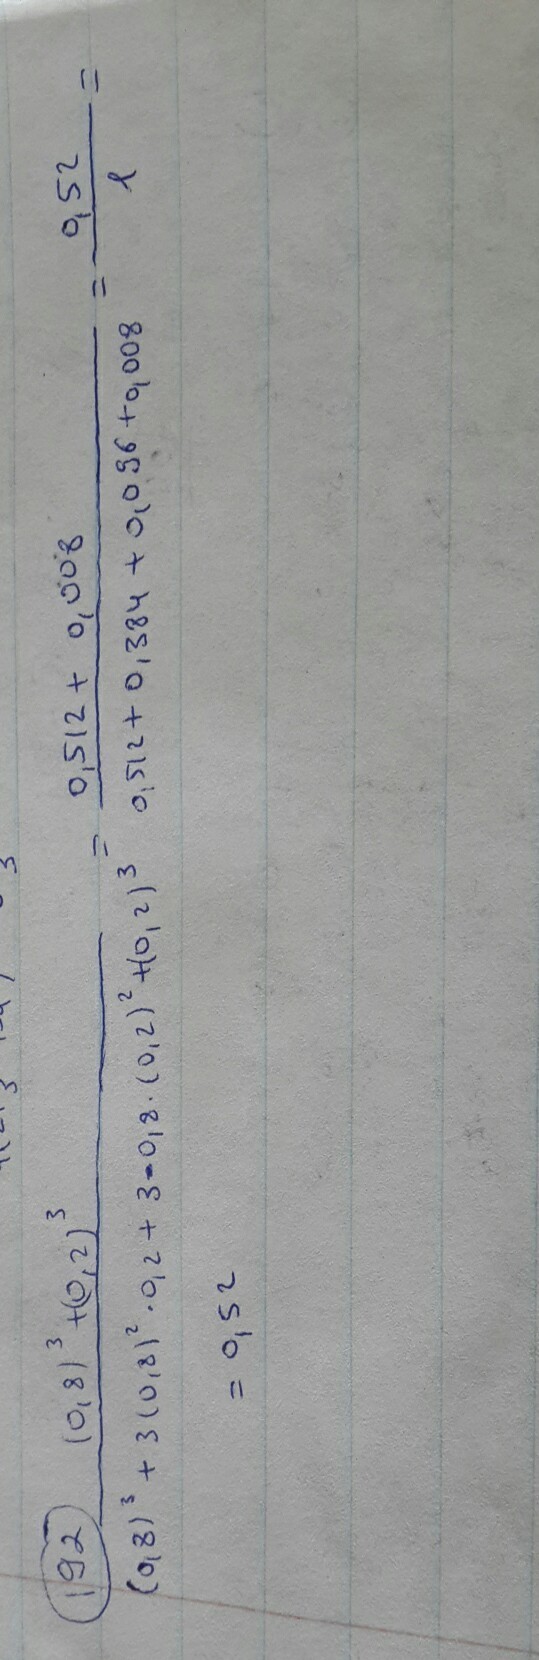 192 (0,8)³ +(0,2)³ = 0,512 + 0,008 = 0,52 =
(0,8)³ + 3(0,8)² · 0,2 + 3 · 0,8 · (0,2)² +(0,2)³ 0,512 + 0,384 + 0,096 + 0,008 1
= 0,52